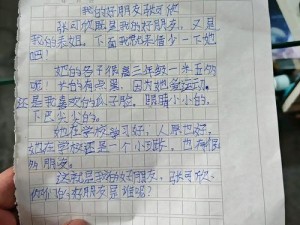 我的好朋友张可欣
张可欣既是我的好朋友，又是
我的表姐，下面我就来介少一下她
吧！
她的各子很高三年级一米五的
呢！长的有点黑，因为她爱运动，
还是我喜欢的瓜子脸，眼睛小小的，
下巴尖尖的。
她在学校学习好，人原也好，
她在学校还是一个小班长，也有很
多朋友。
这就是我的好朋友，张可欣，
你们的好朋友是谁呢？